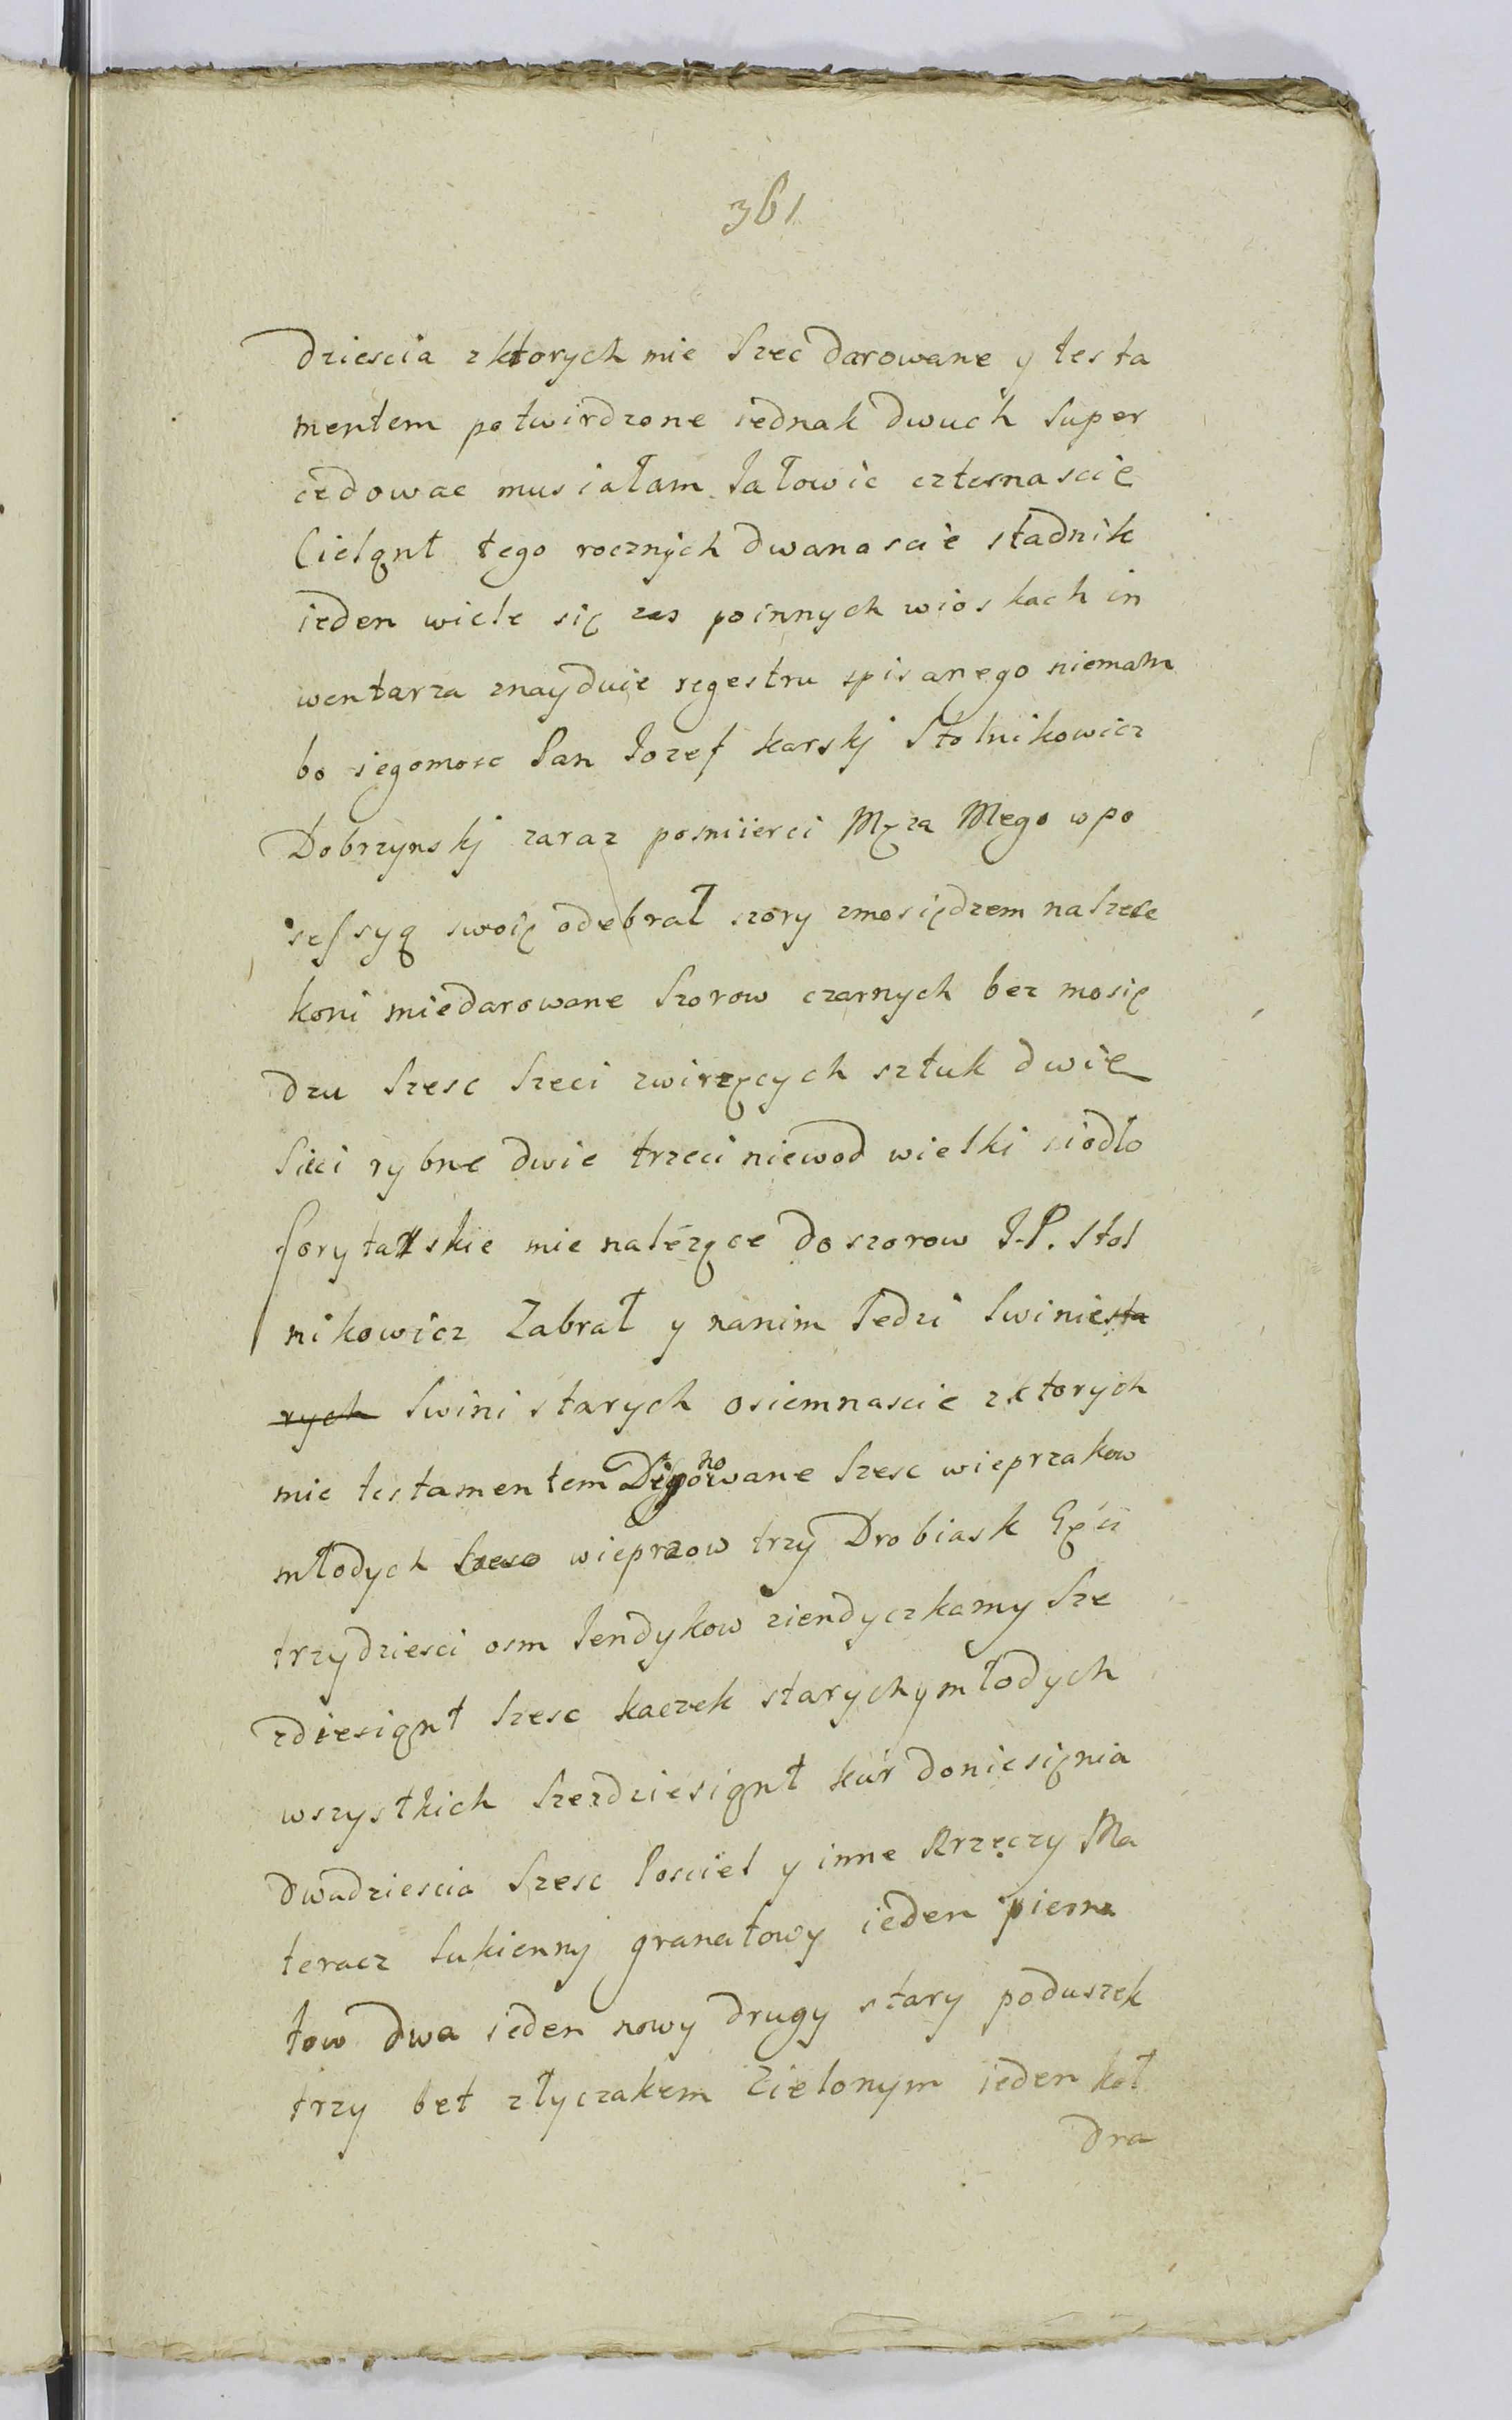 361
dziescia zktorych mie Szec darowane y testa
mentem potwirdzone iednak dwuch Super
cedowac musiałam Jałowic czternascie
Cieląnt tego rocznych dwanascie stadnik
ieden wiele się zas poinnych wioskach in
wentarza znayduie regestru spisanego niemam
bo iegomosc Pan Jozef karskj Stolnikowicz
Dobrzynskj zaraz posmiierci Męza Mego wpo
sessyą swoię odebrał szory zmosiędzem naSzesc
koni miedarowane Szorow czarnych bez mosię
dzu Szesc Szeci zwirzęcych sztuk dwie
Sieci rybne dwie trzeci niewod wielki siodło
forytarskie mie nalezące doszorow J.P. Stol
nikowicz Zabrał y nanim Jedzi Swinie sta
rych Swini starych osiemnascie zktorych
mie testamentem wane Szesc wieprzakow
młodych Szesc wieprzow trzy Drobiask Gęsi
trzydziesci osm Jendykow ziendyczkamy Sze
zdziesiąnt Szesc kaczek starychymłodych
wszystkich Szezdziesiąnt kur doniesięnia
dwadziescia Szesc Posciel y inne Rrzęczy Ma
teracz Sukiennj granatowy ieden pierna
tow dwa ieden nowy drugy stary poduszek
trzy bet złyczakem Zielonym ieden koł
dra